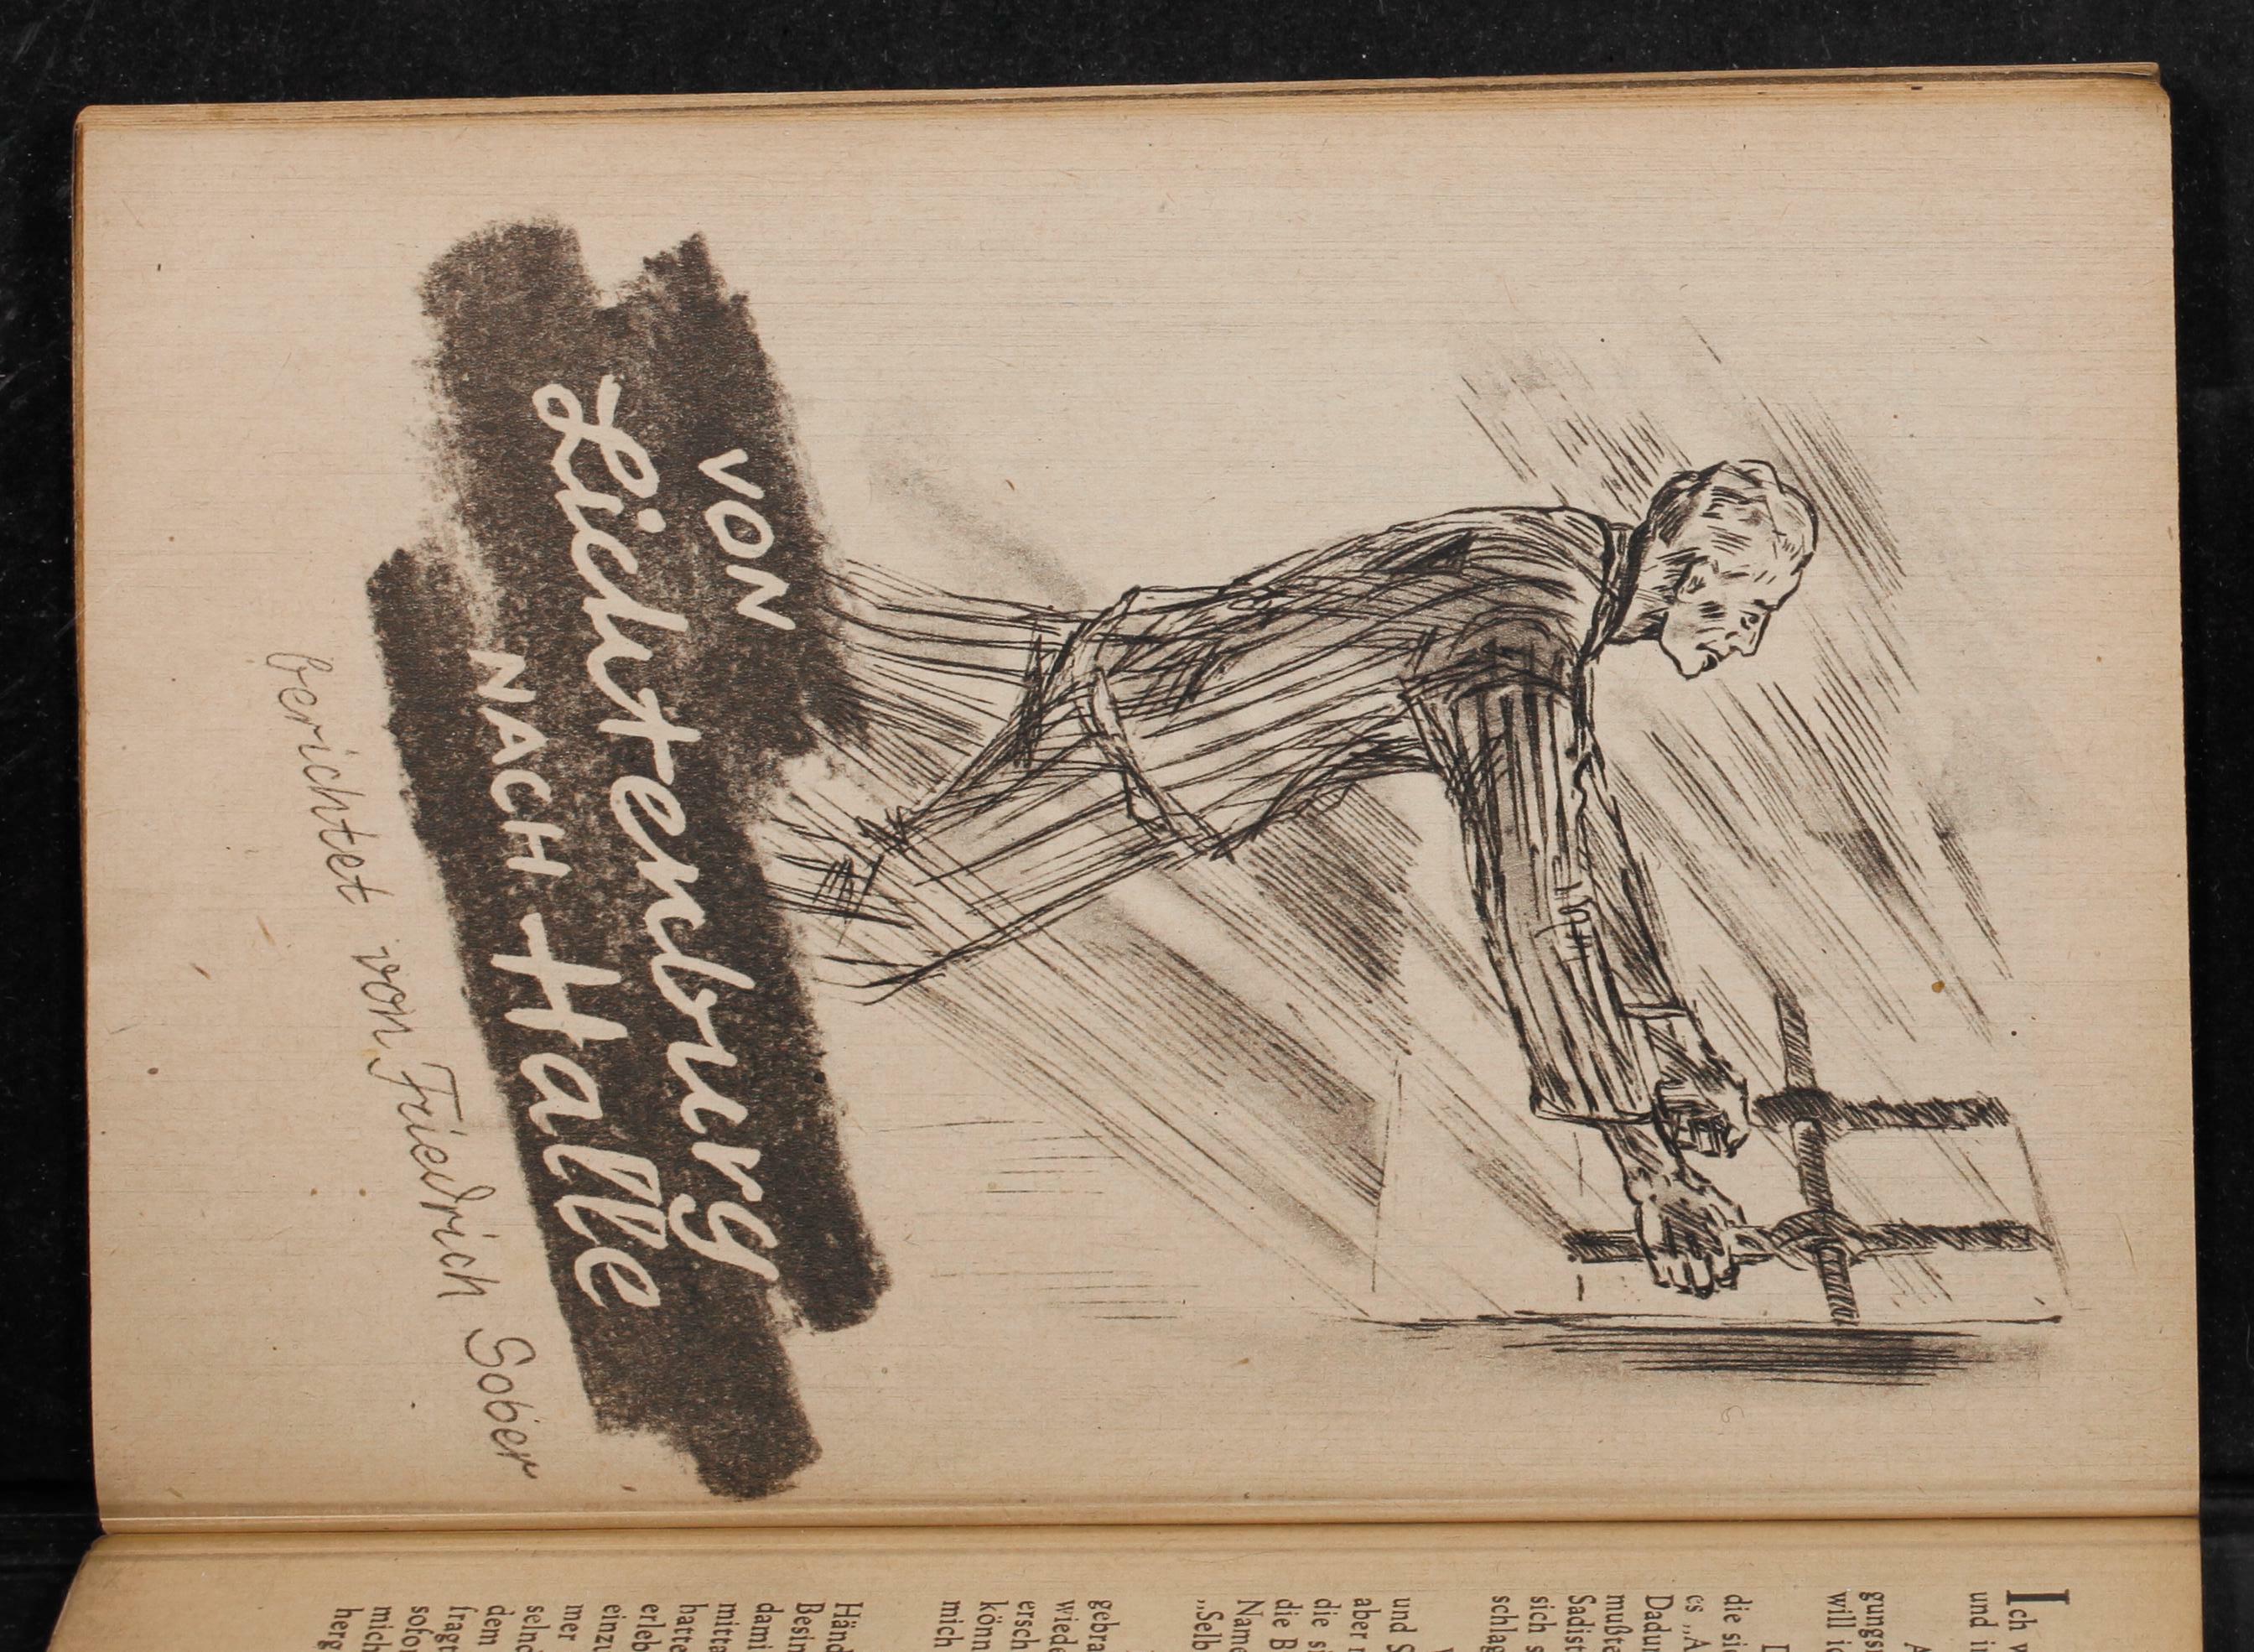 VON
Lichtenburg
NACH Halle
berichtet von Friedrich Sober
Ich
und
will
die
es
mußte
Sadist
sich
schlag
und
aber
die
die
Name
„Selb
gebra
wiede
ersch
könn
mich
Händ
Besin
dami
mitta
hatte
erleb
einzu
mer
selnd
dem
fragt
sofor
mich
herg